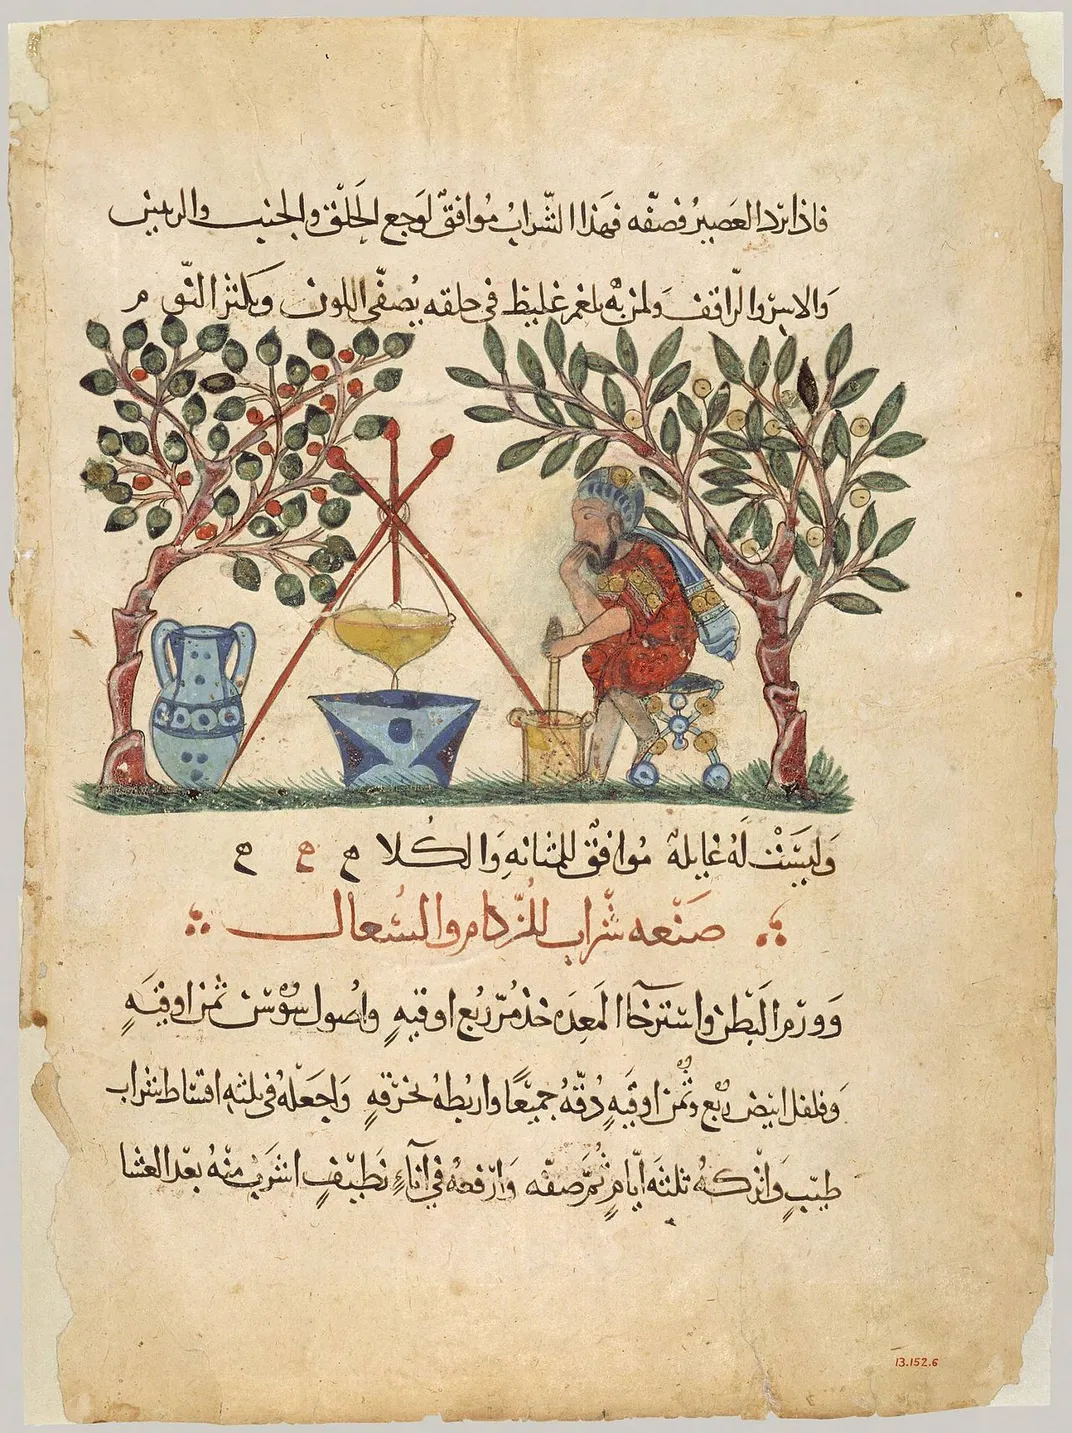 فاذا برد العَصيرُ فصَفّه فهَذا الشّرابُ مُوافقٌ لوَجع الحَلْق والجنب والريين
وَالاسر والرّاقف وَلمن به بلغم غليظ في حلقه يُصفّي اللون ويكثر النّوم
وَليسَتْ لَهُ غايلة مُوافقٌ للمثانه وَالكُلا ح ح ح
صَنْعه شَراب للزُّكام والسُّعال
وَوَرَم البَطْن وَاسْترخآا المَعِدَه خذ مُرّ رُبع اوقيهٍ واصُول سُوْسَن ثمن اوقيَهٍ
وَفلفل ابيض رُبع وثُمن اوقَيهٍ دُقّهُ جَميْعًا وارْبطهُ بخرْقهٍ وَاجعَلهُ في ثلثه اقساط شراب
طيّبٍ وَاتركهُ ثلثَه ايّامٍ ثُمّ صفّه وَارْفعهُ في اناءٍ نَظيْفٍ اشرَبْ منْهُ بعْد العشا
13.152.6